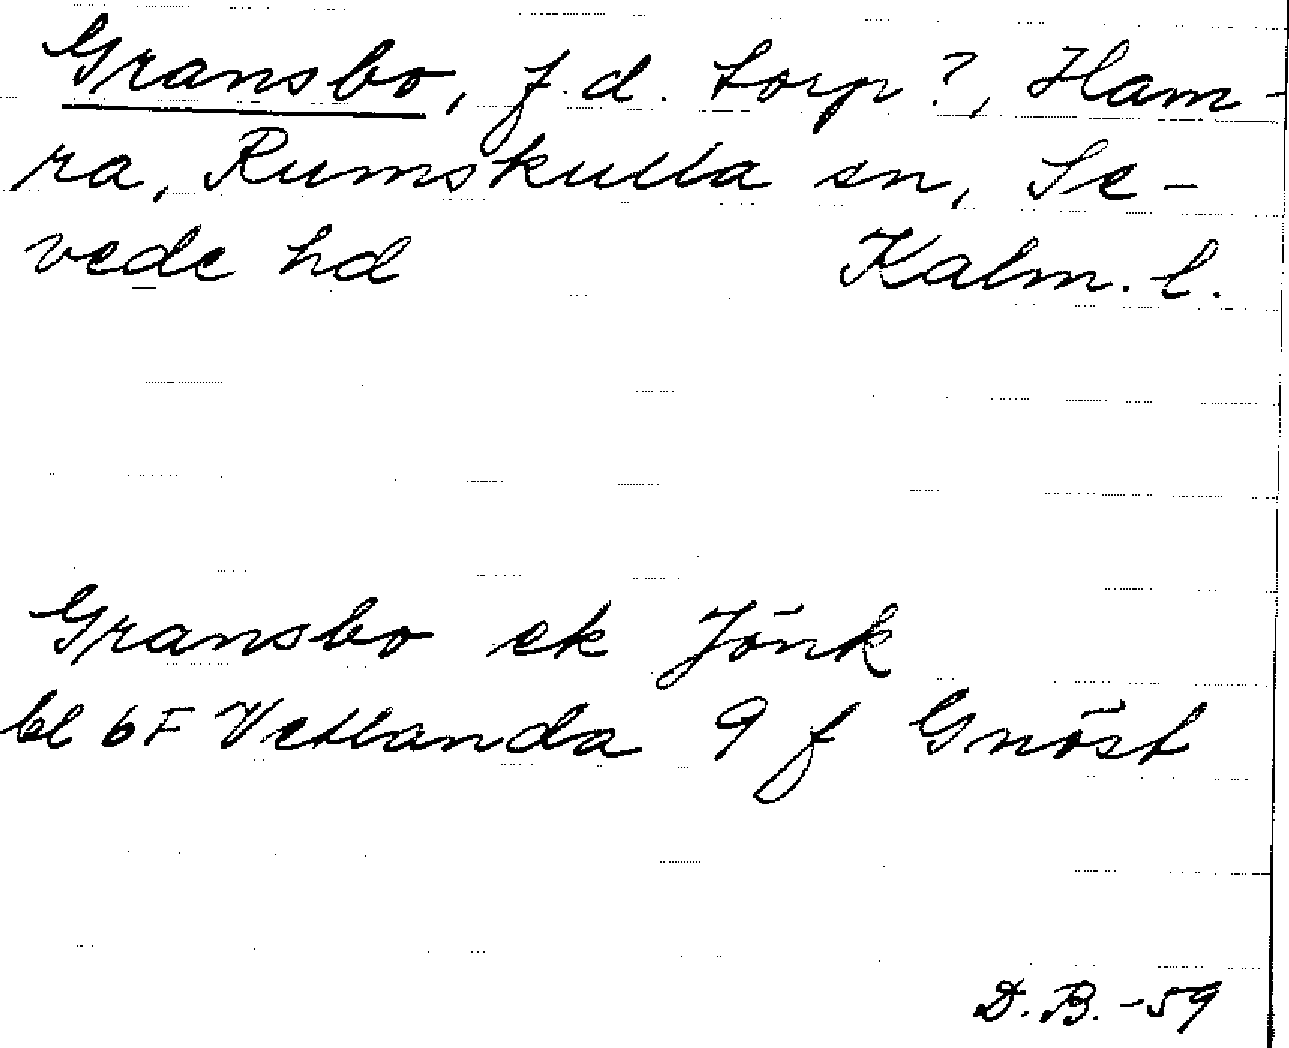 Gransbo, f.d. torp?, Ham-
ra, Rumskulla sn, Se-
vede hd Kalm. l.
Gransbo ek Jönk
bl 6F Vetlanda 9 f Gnöst
D.B. -59